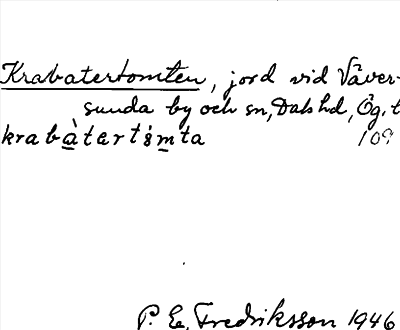 Krabatertomten, jord vid Väver-
sunda by och sn, Dals hd, Ög. t
krabàtertȯmta 109
P. E. Fredriksson 1946